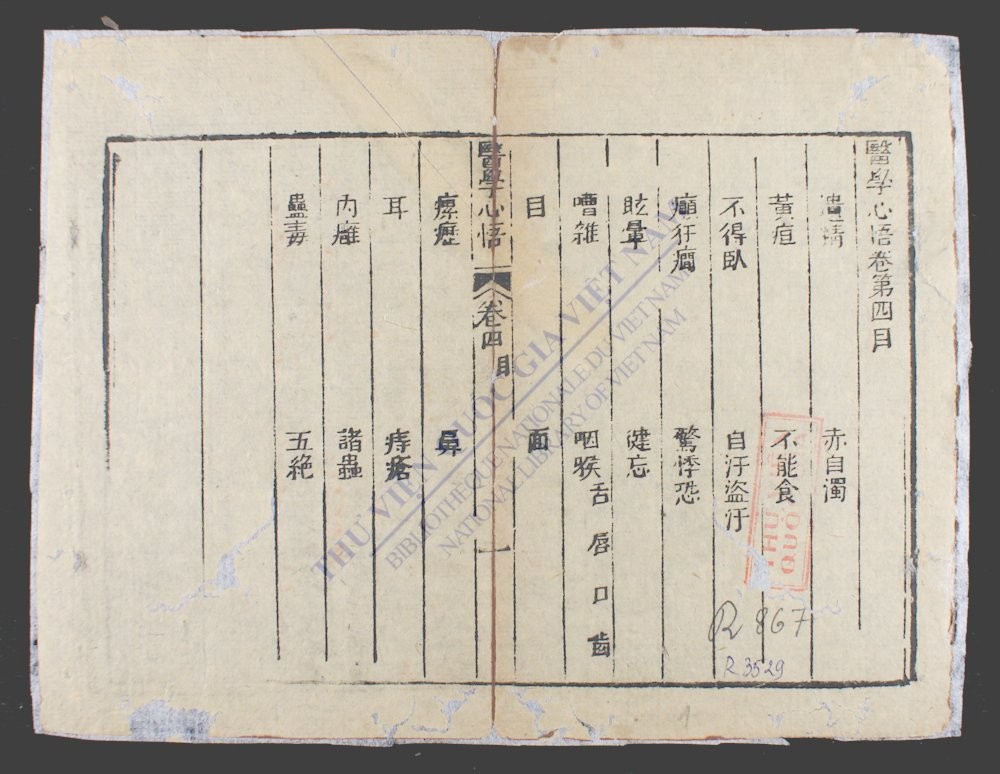 醫學心悟卷第四目
遺精 赤白濁
黃疸 不能食
不得臥 自汗盜汗
癲狂癇 驚悸恐
眩暈 健忘
嘈雜 咽喉舌唇口齒
目 面
醫學心悟 卷四 目 一
瘰癧 鼻
耳 痔瘡
內癰 諸蟲
蠱毒 五絕
THƯ VIỆN QUỐC GIA VIỆT NAM
BIBLIOTHÈQUE NATIONALE DU VIETNAM
NATIONAL LIBRARY OF VIETNAM
R 867
R 3529
1